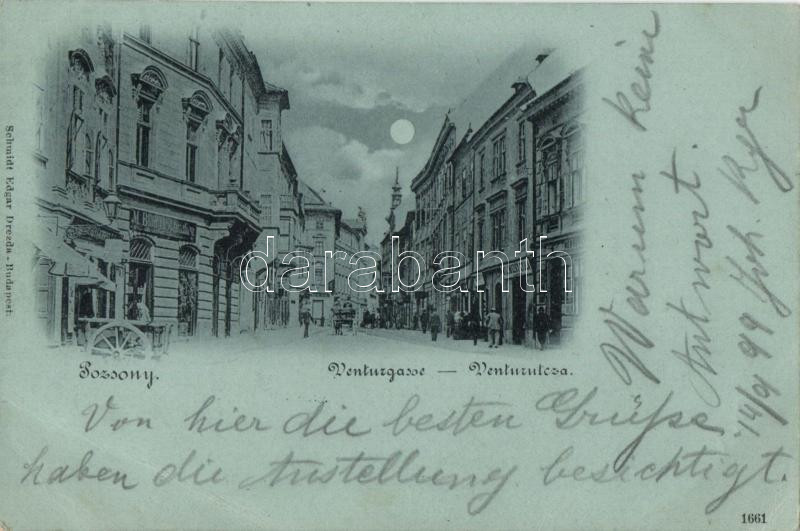 Schmidt Edgar Drezda - Budapest.
darabanth
Pozsony.
Venturgasse — Venturutcza.
Von hier die besten Grüße
haben die Austellung besichtigt.
Warum keine
Antwort.
14/9 99 Joh.
1661